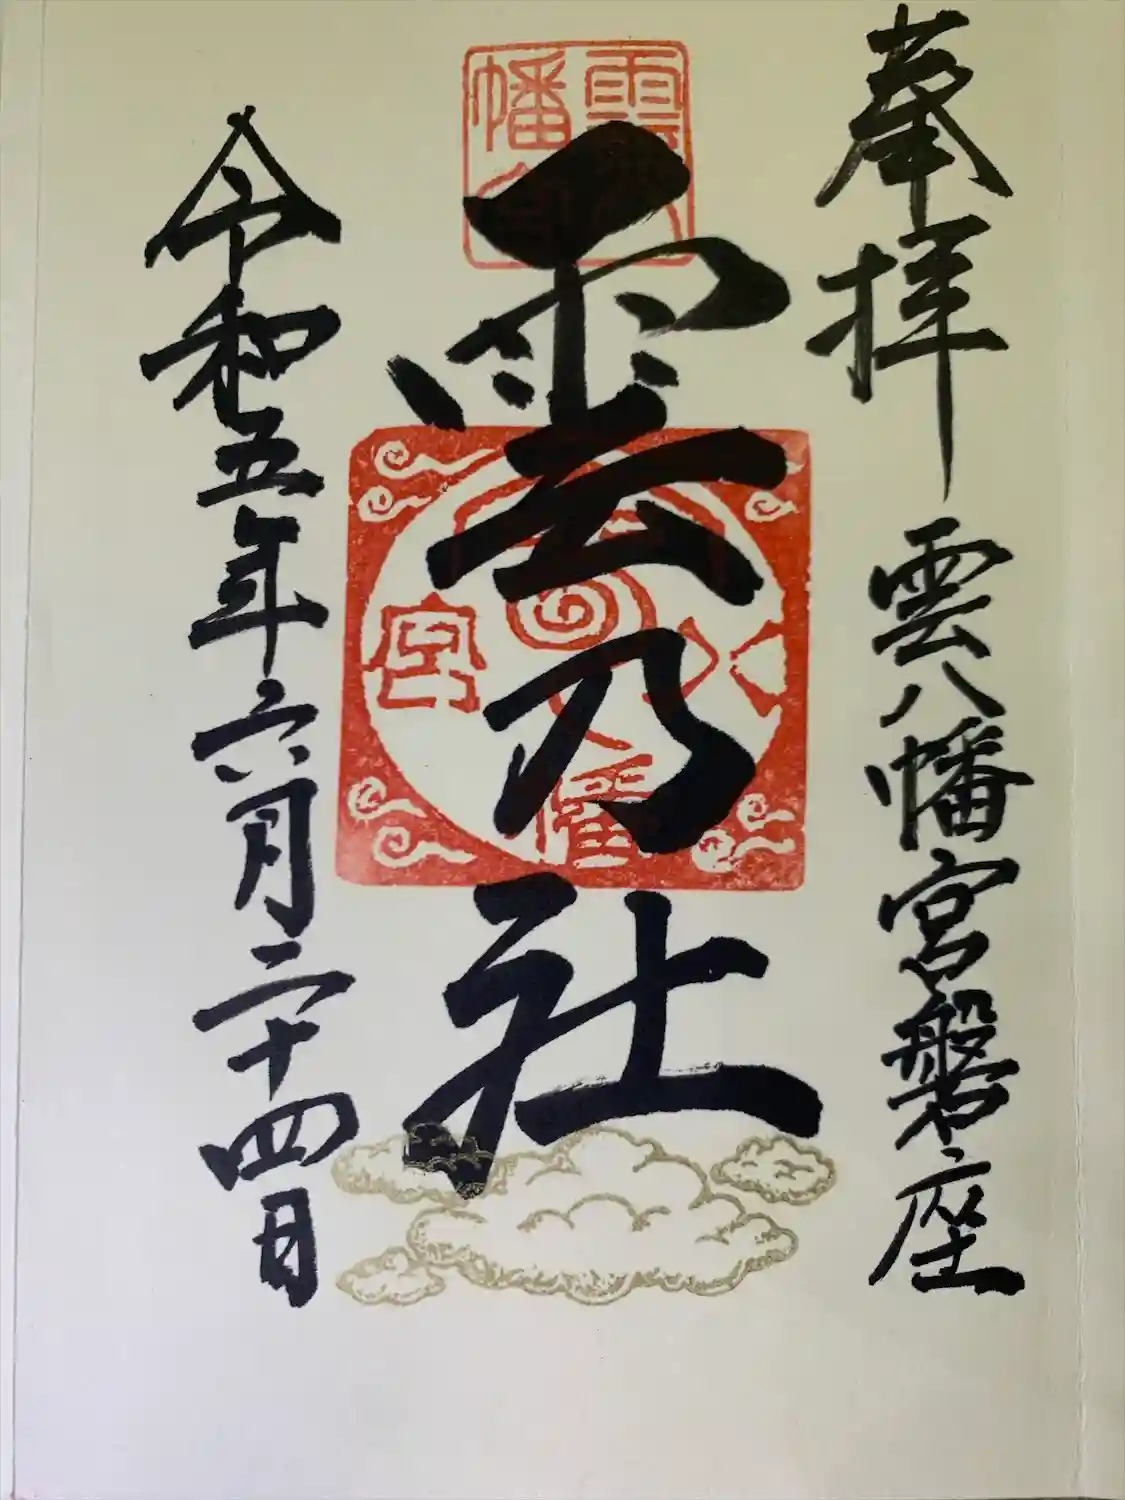 奉拝 雲八幡宮磐座
雲乃社
令和五年六月二十四日
雲八
幡宮
雲
八
幡
宮